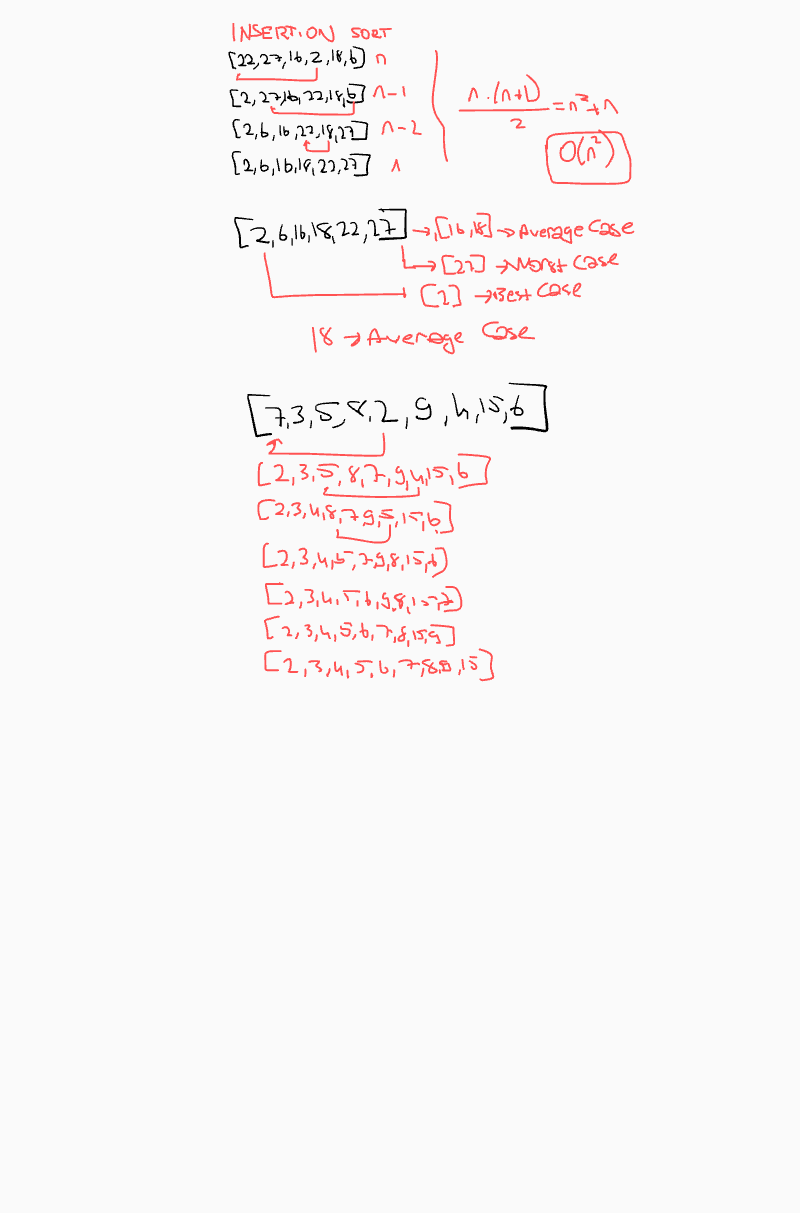 INSERTION SORT
[22,27,16,2,18,6] n
[2,27,16,22,18,6] n-1
[2,6,16,22,18,27] n-2
[2,6,16,18,22,27] 1
n.(n+1)/2 = n²+n
O(n²)
[2,6,16,18,22,27] → [16,18] → Average Case
→ [27] → Worst Case
[2] → Best Case
18 → Average Case
[7,3,5,8,2,9,4,15,6]
[2,3,5,8,7,9,4,15,6]
[2,3,4,8,7,9,5,15,6]
[2,3,4,5,7,9,8,15,6]
[2,3,4,5,6,9,8,15,7]
[2,3,4,5,6,7,8,15,9]
[2,3,4,5,6,7,8,9,15]